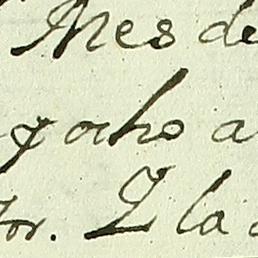 Mes de
y ocho a
tor. Y la